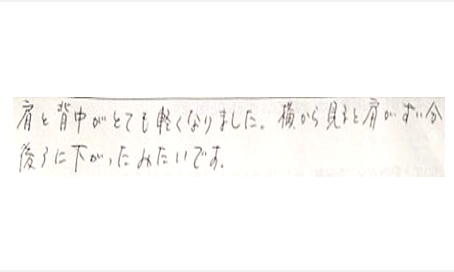 肩と背中がとても軽くなりました。横から見ると肩がずい分
後ろに下がったみたいです。